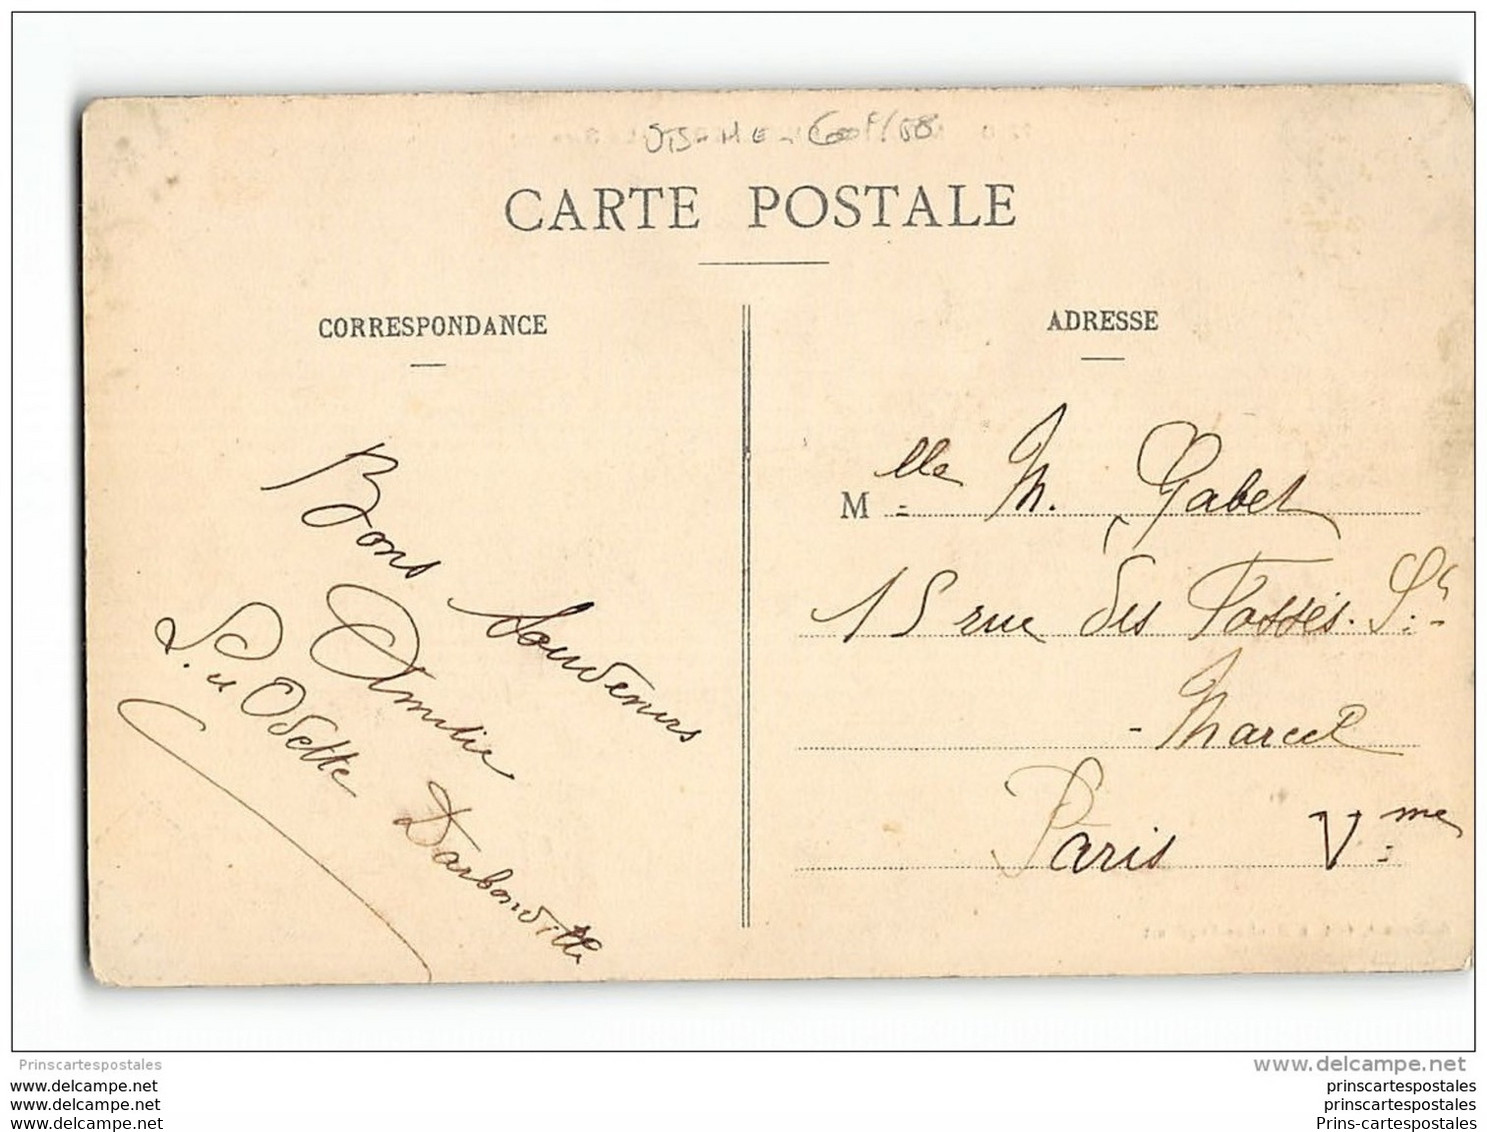 CARTE POSTALE
CORRESPONDANCE
Bons Souvenirs
Amitie
S. et Odette
Darbonville
ADRESSE
Mlle M. Gabet
15 rue des Fossés-St
-Marcel
Paris Vme
Prinscartespostales
www.delcampe.net
www.delcampe.net
www.delcampe.net
www.delcampe.net
prinscartespostales
prinscartespostales
Prins-cartespostales